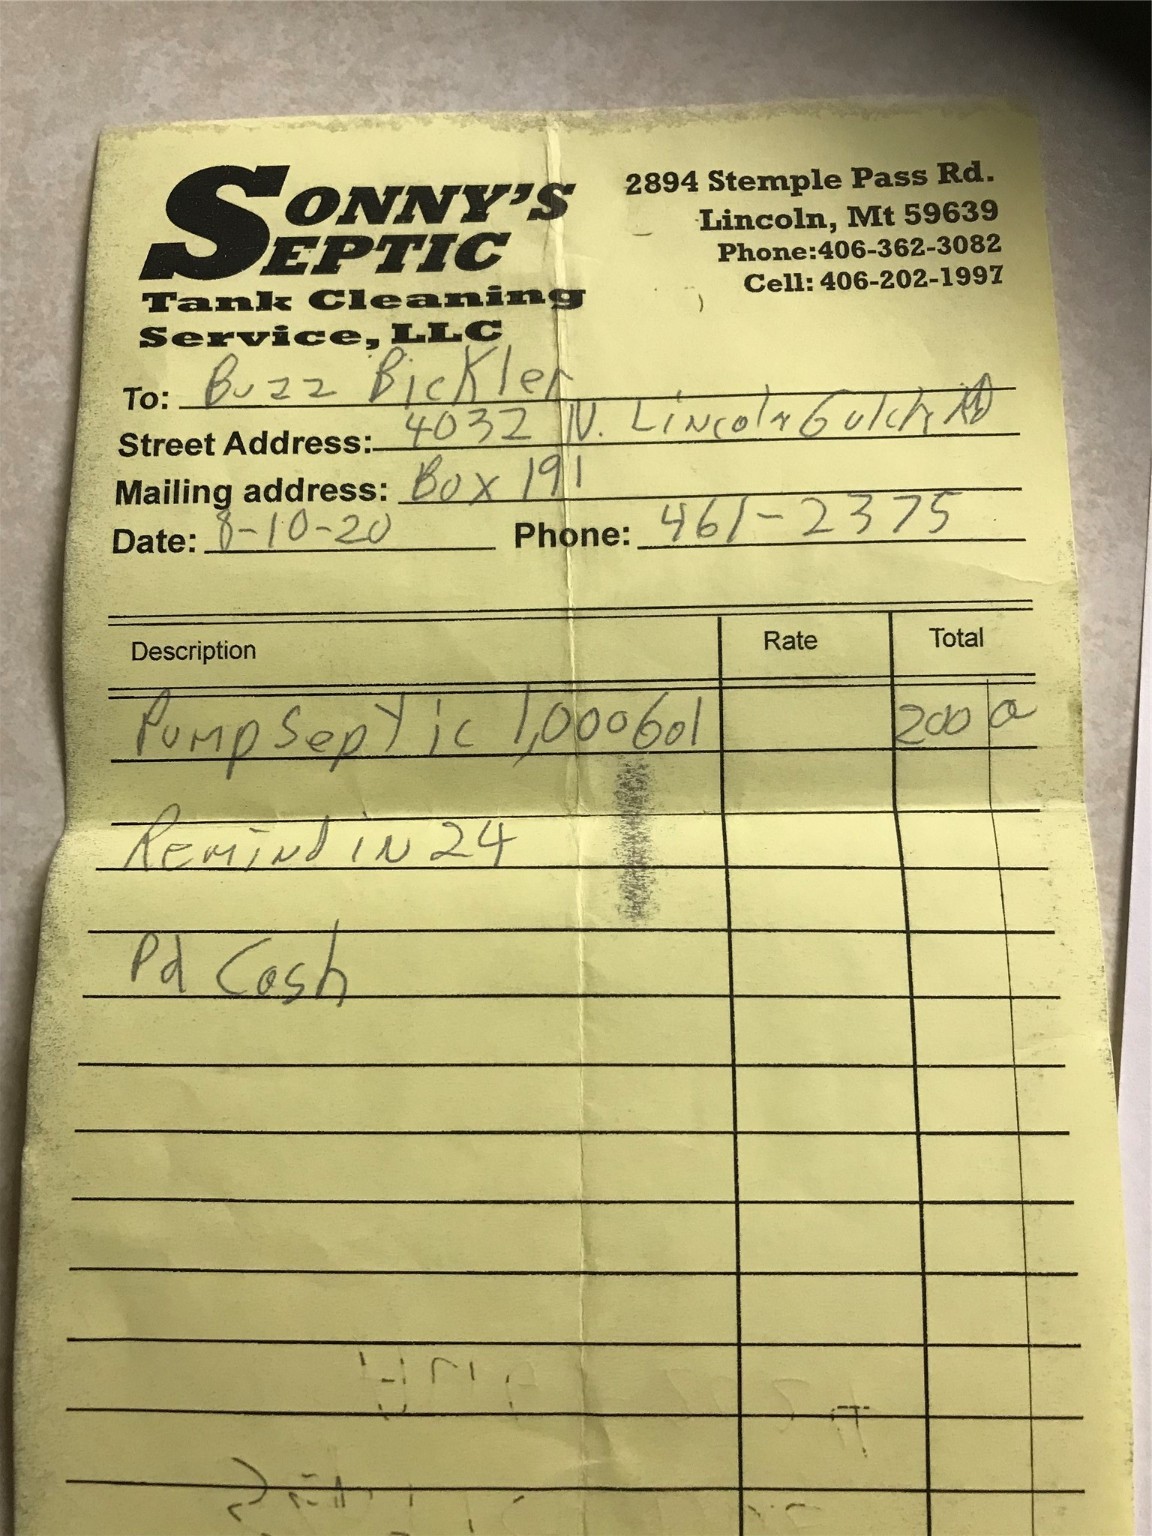 SONNY'S
SEPTIC
Tank Cleaning
Service, LLC
2894 Stemple Pass Rd.
Lincoln, Mt 59639
Phone:406-362-3082
Cell: 406-202-1997
To: Buzz Bickler
Street Address: 4032 N. Lincoln Gulch Rd
Mailing address: Box 191
Date: 8-10-20 Phone: 461-2375
Description Rate Total
Pump Septic 1,000 Gal 200
Remind in 24
Pd Cash